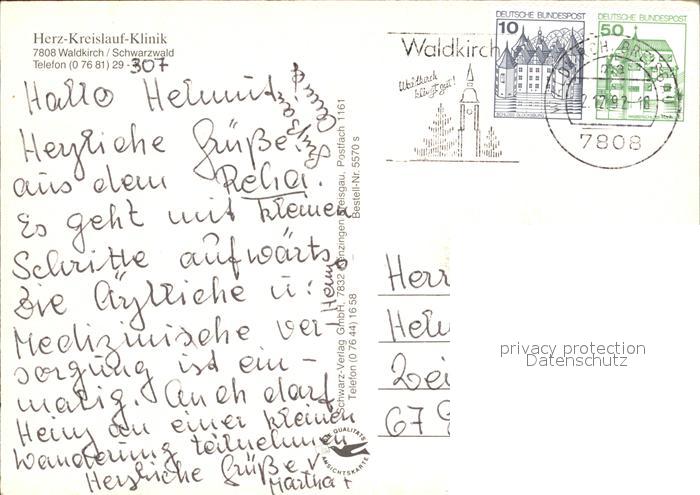 Herz-Kreislauf-Klinik
7808 Waldkirch / Schwarzwald
Telefon (0 76 81) 29 - 307
Hallo Helmut
Herzliche Grüße
aus dem Reha.
Es geht mit kleinen
Schritte aufwärts
Die Ärztliche u:
Medizinische ver-
sorgung ist ein-
malig. Auch darf
Heinz an einer kleinen
Wanderung teilnehmen
Herzliche Grüße v
Martha +
Heinz
Schwarz-Verlag GmbH, 7832 Kenzingen/Breisgau, Postfach 1161
Telefon (0 76 44) 16 58
Bestell-Nr. 5570 s
QUALITÄTS
ANSICHTSKARTE
Waldkirch
Waldkirch
klingt gut!
DEUTSCHE BUNDESPOST
10
SCHLOSS GLÜCKSBURG
DEUTSCHE BUNDESPOST
50
7808
Herr
Hel
67
privacy protection
Datenschutz